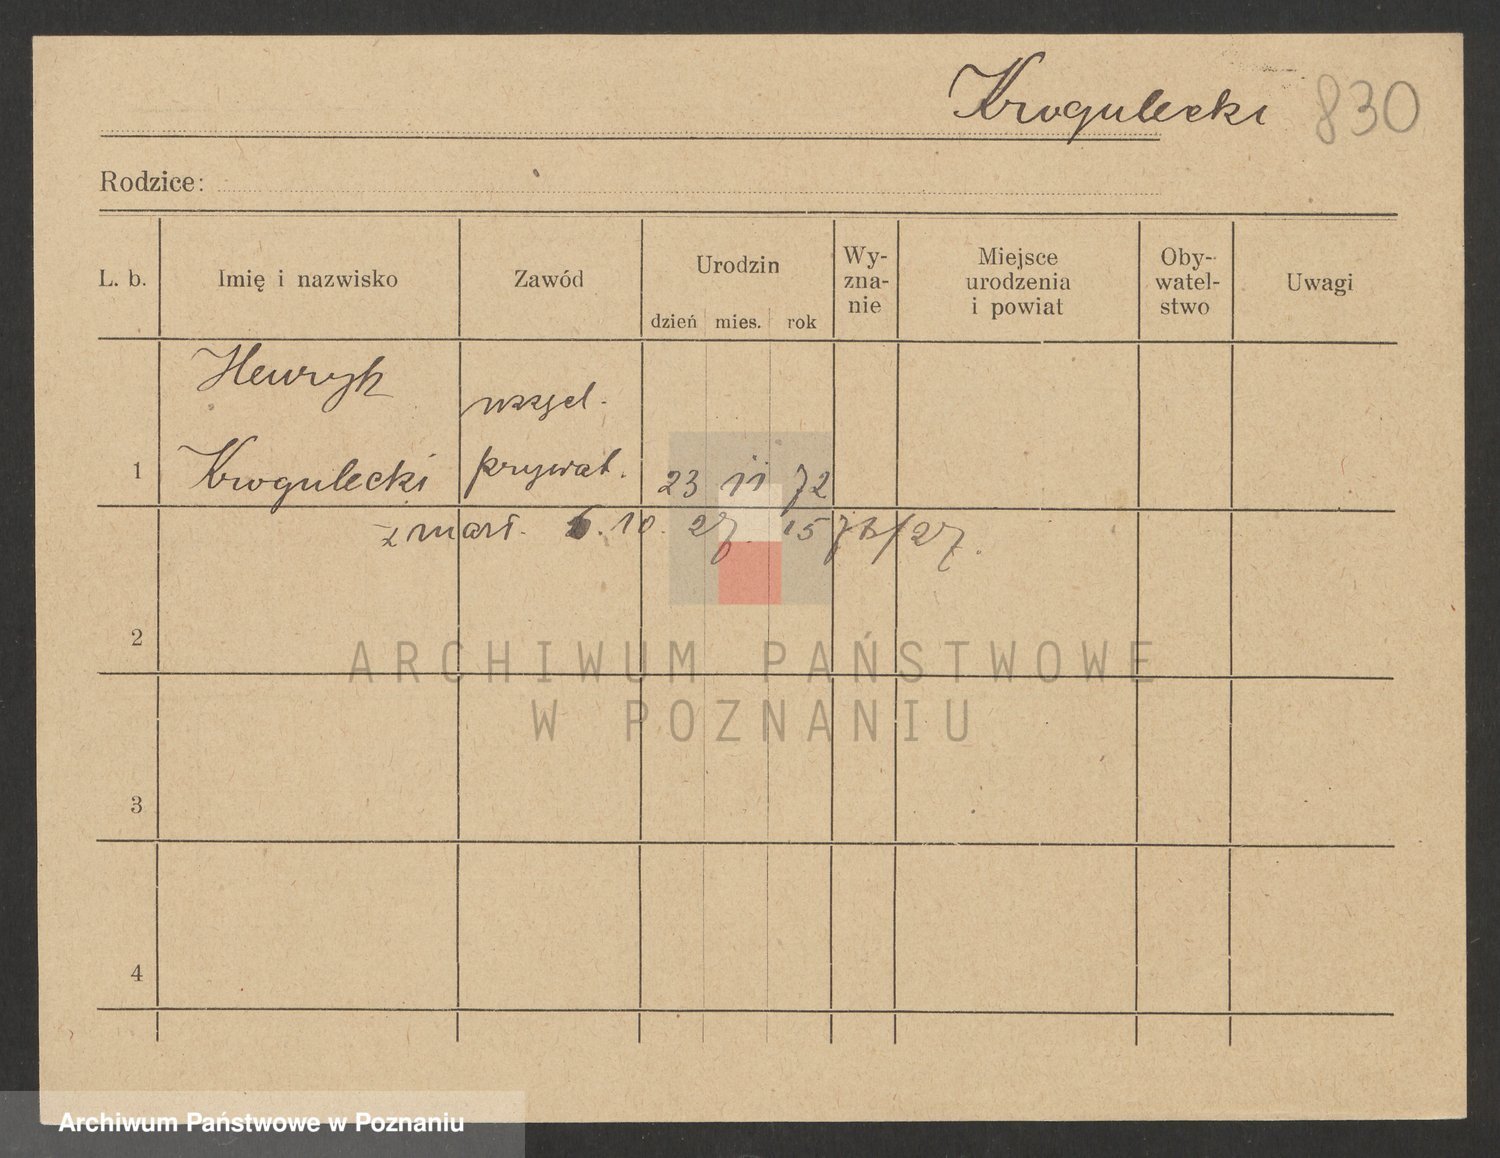 Krogulecki 830
Rodzice:
L. b. Imię i nazwisko Zawód Urodzin dzień mies. rok Wy-zna-nie Miejsce urodzenia i powiat Oby-watel-stwo Uwagi
Henryk
1 Krogulecki prywat. 23 11 72
zmarł. 6.10.27. /27.
2
ARCHIWUM PAŃSTWOWE
W POZNANIU
3
4
Archiwum Państwowe w Poznaniu